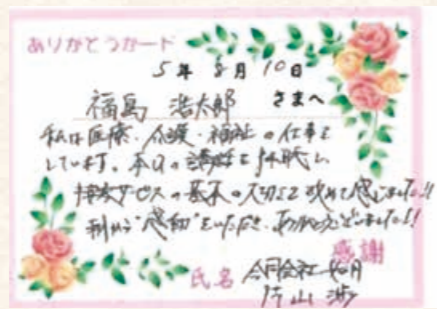 ありがとうカード
5年8月10日
福島 浩太郎 さまへ
私は医療・介護・福祉の仕事を
しています。本日の講話を拝聴し
接客サービスの基本の大切さを改めて感じました!!
“感動”をいただき、ありがとうございました!!
感謝
氏名 合同会社 如月
片山 渉